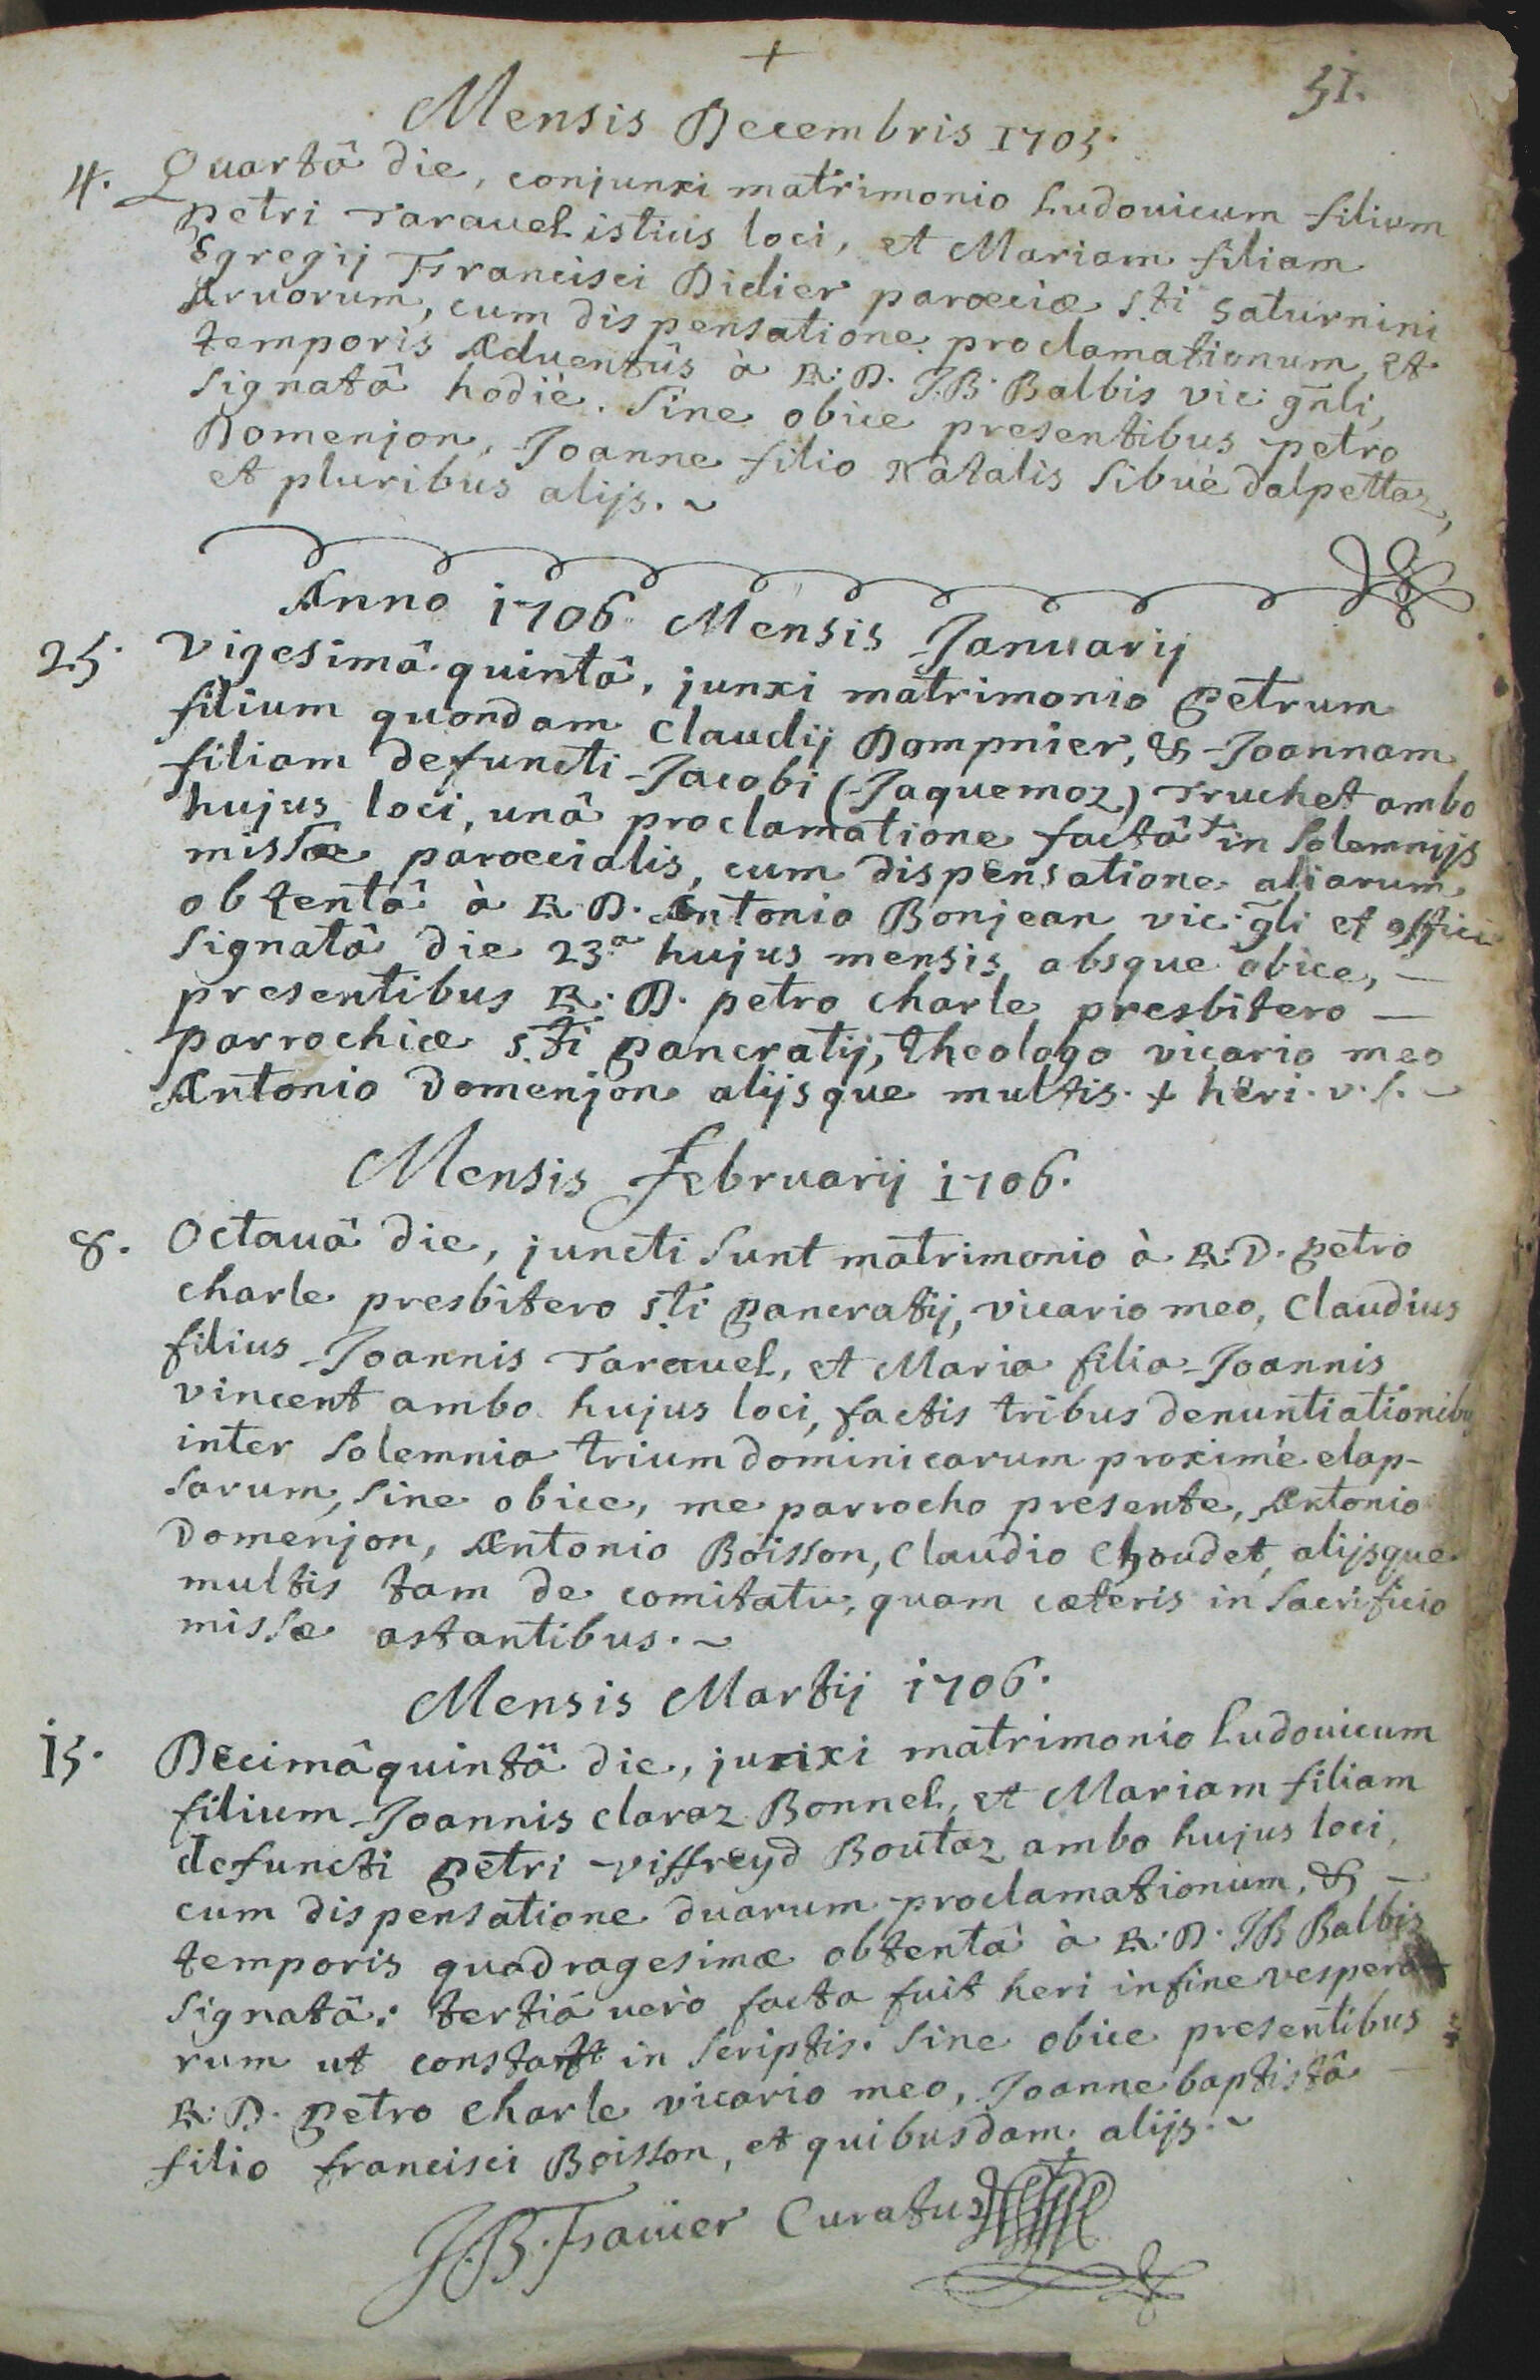 +
51.
Mensis Decembris 1705.
4. Quartâ die, conjunxi matrimonio Ludouicum filium
petri Tarauel istius loci, et Mariam filiam
Egregij Francisci Didier parœciæ S.ti Saturnini
Aruorum, cum dispensatione proclamationum, et
temporis Aduentûs à R: D. J.B. Balbis vic: gnli,
signatâ hodiè. Sine obice presentibus petro
Domenjon, Joanne filio Natalis Sibuè dalpettaz,
et pluribus alijs. ~
Anno 1706 Mensis Januarij
25. Vigesimâ quintâ, junxi matrimonio petrum
filium quondam Claudij Dompnier, & Joannam
filiam defuncti Jacobi (Jaquemoz) Truchet ambo
hujus loci, unâ proclamatione factâ + in Solemnijs
missæ parœcialis, cum dispensatione aliarum
obtentâ à R. D. Antonio Bonjean vic: gli et offici
signatâ die 23.a hujus mensis, absque obice, —
presentibus R: D. petro charle presbitero —
parrochiæ S.ti pancratij, theologo vicario meo
Antonio Domenjon alijsque multis. + heri. v. s. ~
Mensis februarij 1706.
8. Octauâ die, juncti sunt matrimonio à R: D. petro
charle presbitero S.ti pancratij, vicario meo, Claudius
filius Joannis Tarauel, et Maria filia Joannis
vincent ambo hujus loci, factis tribus denuntiationibu
inter Solemnia trium dominicarum proximè elap-
sarum, sine obice, me parrocho presente, Antonio
Domenjon, Antonio Boisson, Claudio Choudet, alijsque
multis tam de comitatu, quam cæteris in Sacrificio
missæ astantibus. ~
Mensis Martij 1706.
15. Decimâquintâ die, junxi matrimonio Ludouicum
filium Joannis claraz Bonnel, et Mariam filiam
defuncti petri viffreyd Boutaz ambo hujus loci,
cum dispensatione duarum proclamationum, & —
temporis quadragesimæ obtentâ à R: D. JB Balbis
signatâ: tertiâ uerò facta fuit heri in fine vespera
rum ut constat in scriptis. Sine obice presentibus
R: D. petro charle vicario meo, Joanne baptistâ —
filio francisci Boisson, et quibusdam alijs. ~
J.B. Curatus